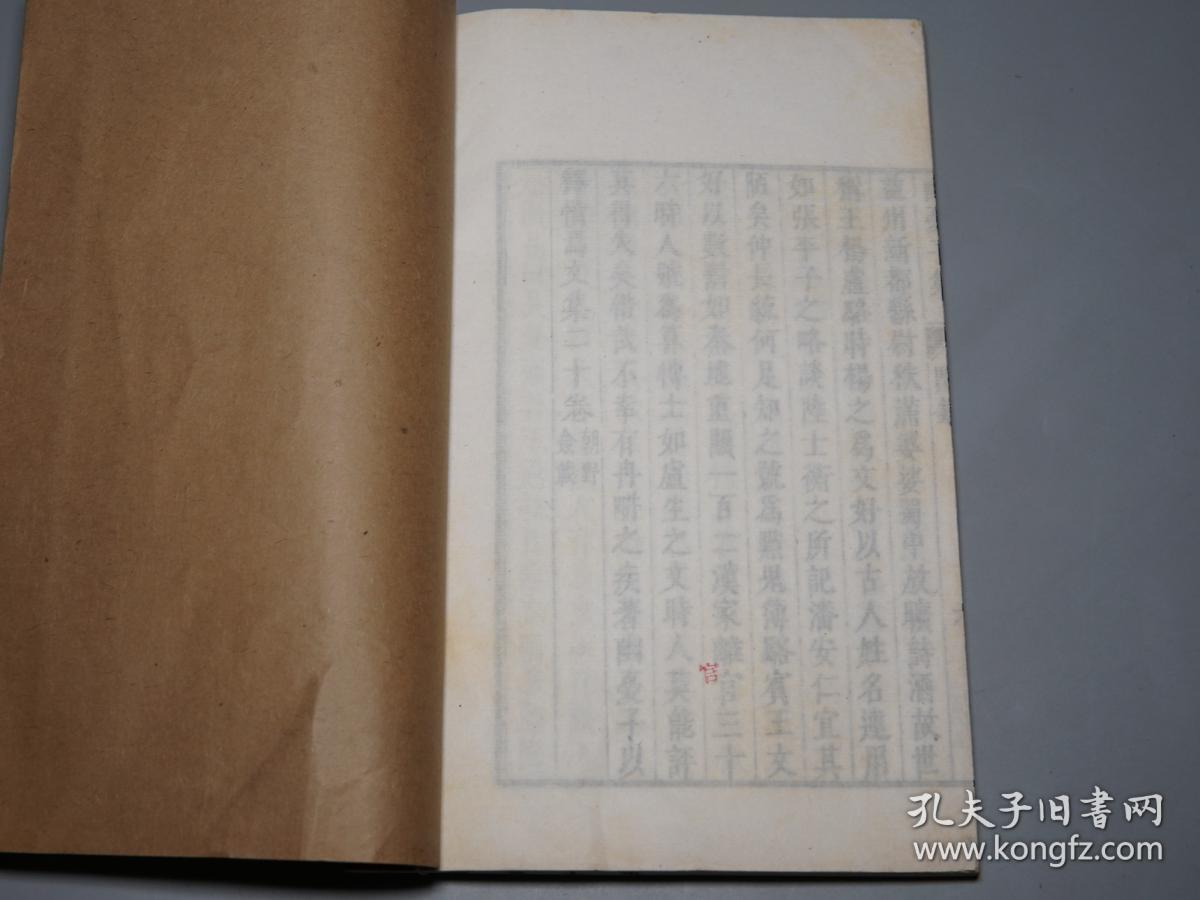 益州新都縣尉秩滿婆娑蜀中放曠詩酒故世
稱王楊盧駱時楊之爲文好以古人姓名連用
如張平子之略談陸士衡之所記潘安仁宜其
陋矣仲長統何足知之號爲點鬼簿駱賓王文
好以數對如秦地重關一百二漢家離宮三十
六時人號爲算博士如盧生之文時人莫能評
其得失矣惜哉不幸有冉畊之疾著幽憂子以
釋憤焉文集二十卷
朝野
僉載
宮
孔夫子旧书网
www.kongfz.com